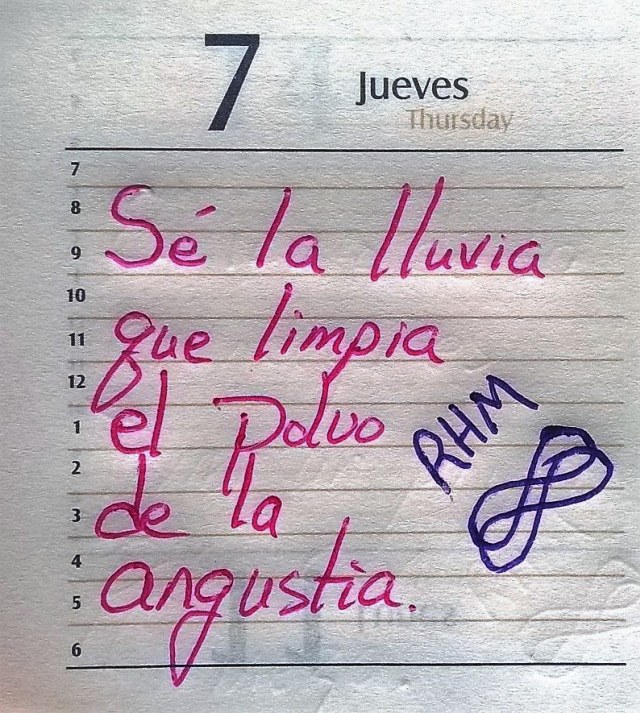 7
Jueves
Thursday
7
8
Sé la lluvia
9
10
que limpia
11
12
el polvo
1
RHM
2
de la
3
4
angustia.
5
6